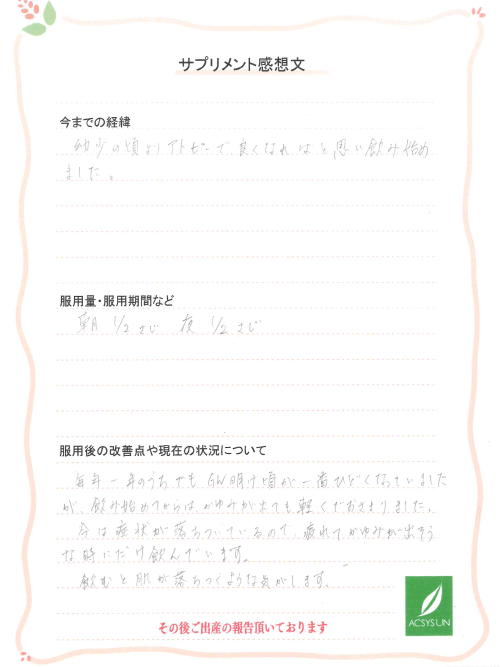 サプリメント感想文
今までの経緯
幼少の頃よりアトピーで、良くなればと思い飲み始め
ました。
服用量・服用期間など
朝 1/2さじ 夜 1/2さじ
服用後の改善点や現在の状況について
毎年一年のうちでもGW明け頃が一番ひどくなっていました
が、飲み始めてからは、かゆみがとても軽くおさまりました。
今は症状が落ちついているので、疲れてかゆみが出そう
な時にだけ飲んでいます。
飲むと肌が落ちつくような気がします。
ACSYSLIN
その後ご出産の報告頂いております